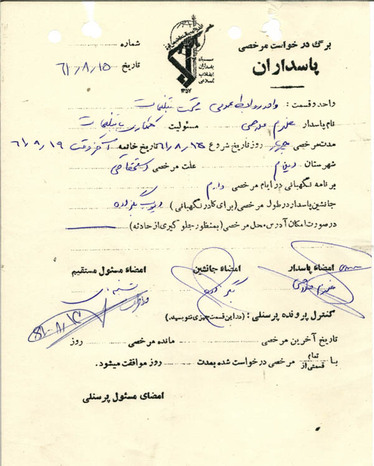 برگ درخواست مرخصی
شماره
پاسداران
تاریخ ۶۱/۸/۱۵
سپاه
پاسداران
انقلاب
اسلامی
واحد و قسمت: واحد روابط عمومی قسمت تبلیغات
نام پاسدار مسئولیت همکاری با تبلیغات
مدت مرخصی روز تاریخ شروع ۶۱/۸/۱۶ تاریخ خاتمه آخر وقت ۶۱/۸/۱۹
شهرستان علت مرخصی استحقاقی
برنامه نگهبانی در ایام مرخصی دارم
جانشین پاسدار در طول مرخصی (برای کادر نگهبانی)
در صورت امکان آدرس محل مرخصی (بمنظور جلوگیری از حادثه)
امضاء پاسدار امضاء جانشین امضاء مسئول مستقیم
کنترل پرونده پرسنلی: (در این قسمت چیزی ننویسید)
تاریخ آخرین مرخصی مانده مرخصی روز
با تمام / قسمتی از مرخصی درخواست شده بمدت روز موافقت میشود.
امضای مسئول پرسنلی